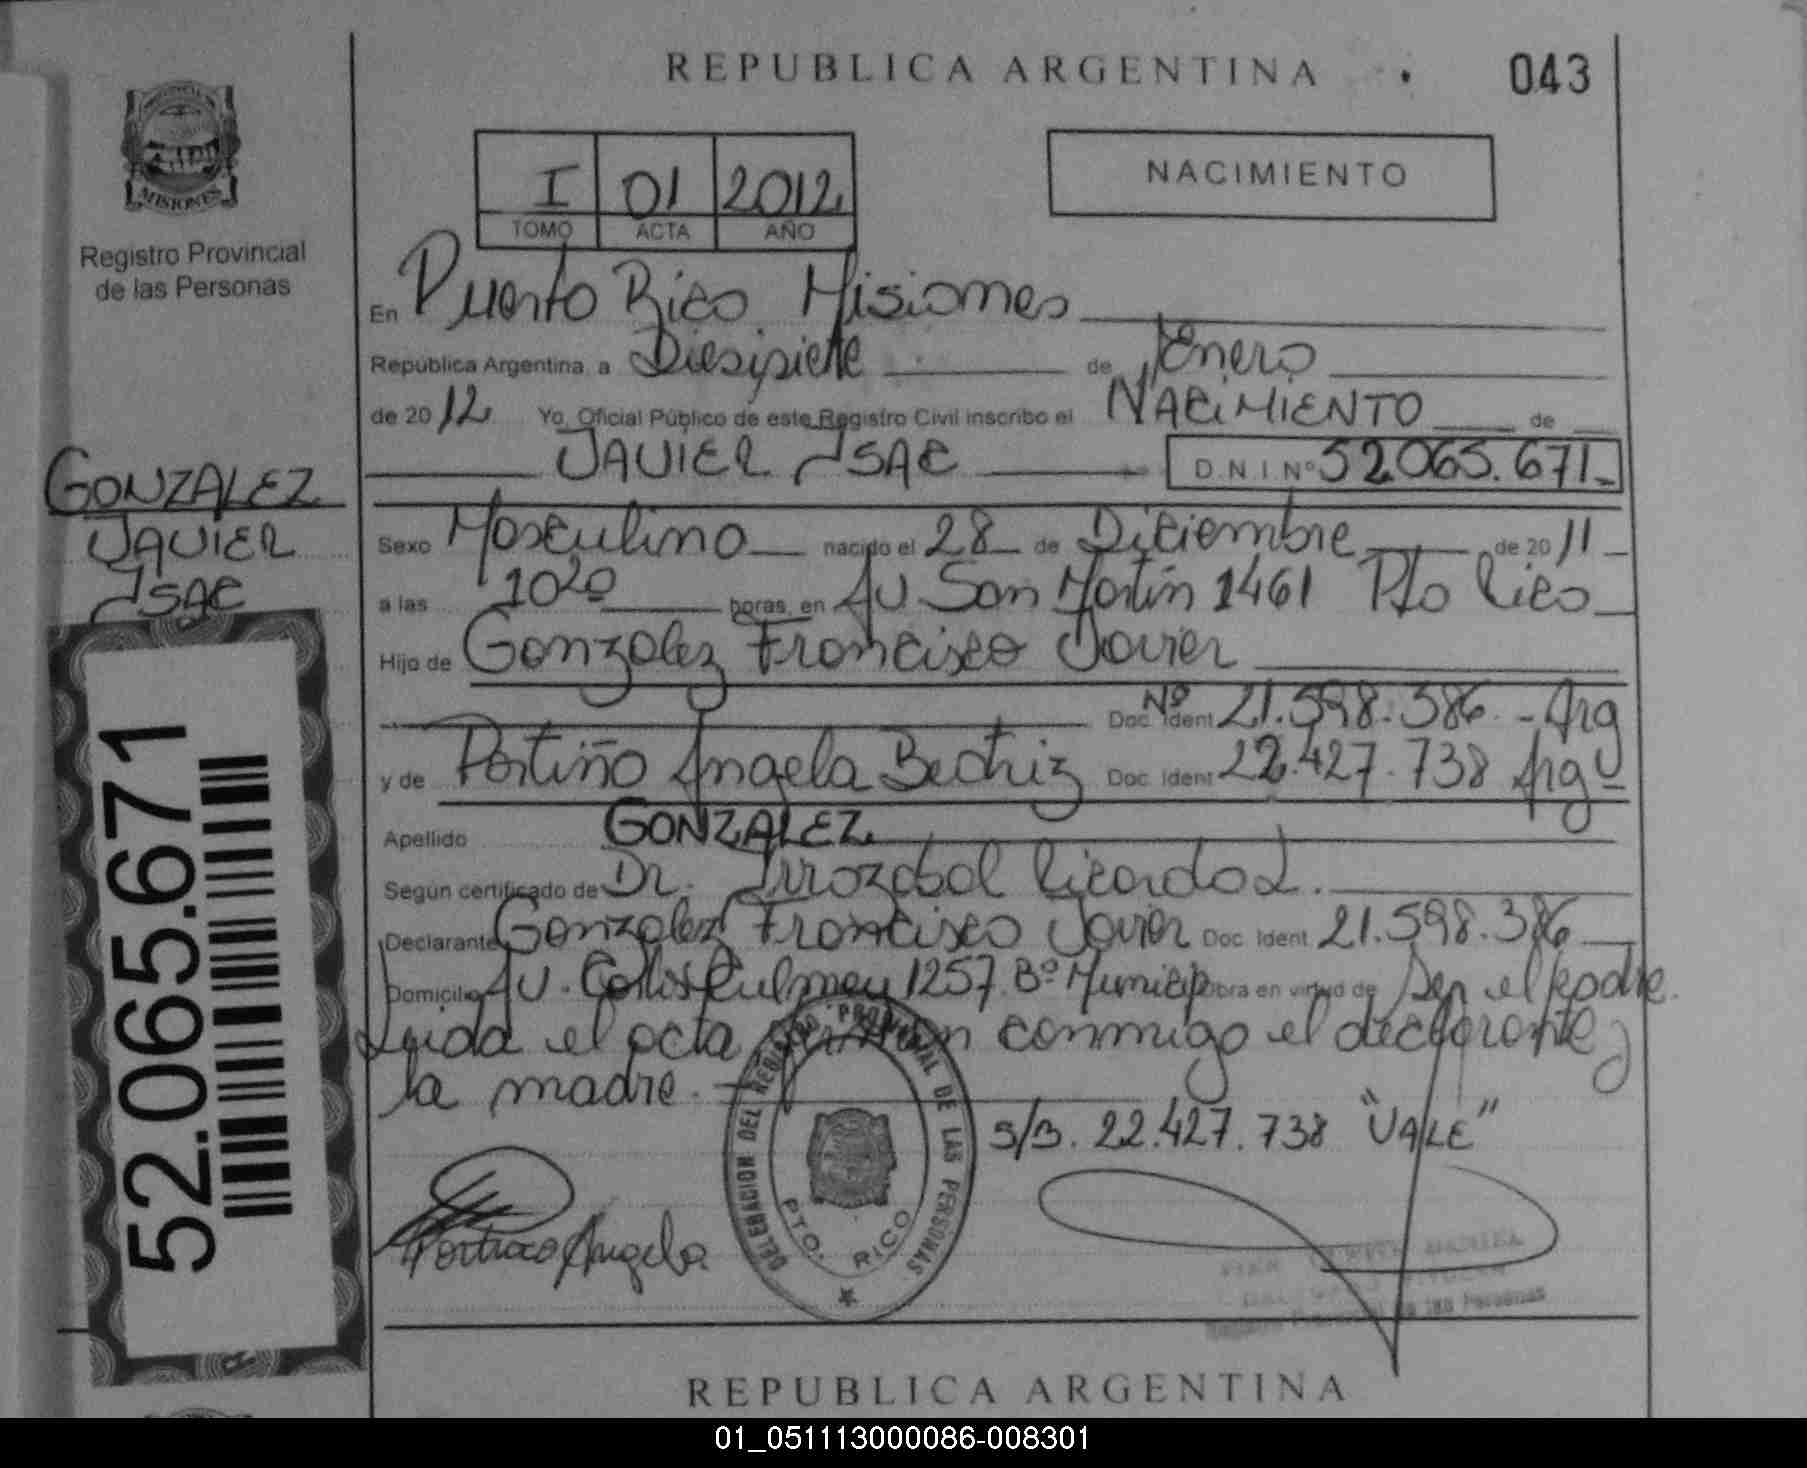 REPUBLICA ARGENTINA
043
MISIONES
Registro Provincial
de las Personas
I 01 2012
TOMO ACTA AÑO
NACIMIENTO
En Puerto Rico Misiones
República Argentina, a Diesisiete de Enero
de 2012 Yo, Oficial Público de este Registro Civil inscribo el NACIMIENTO de
JAVIER ISAC D.N.I. Nº 52.065.671
GONZALEZ
JAVIER
ISAC
Sexo Masculino nacido el 28 de Diciembre de 2011
a las 1020 horas, en Av San Martín 1461 Pto Rico
Hijo de Gonzalez Francisco Javier
Doc. Nº Ident 21.598.386 - Arg
y de Portiño Angela Beatriz Doc. Ident 22.427.738 Arg
Apellido GONZALEZ
Según certificado de Dr. Irrozabal Ricardo L.
Declarante Gonzalez Francisco Javier Doc. Ident 21.598.386
Domicilio Av. Carlos Culmey 1257. Bº Municip Obra en virtud de Ser el padre.
Leida el acta firman conmigo el declarante y
la madre.
S/B. 22.427.738 "VALE"
DELEGACION DEL REGISTRO PROVINCIAL DE LAS PERSONAS
PTO. RICO
Angela
de las Personas
52.065.671
REPUBLICA ARGENTINA
01_051113000086-008301